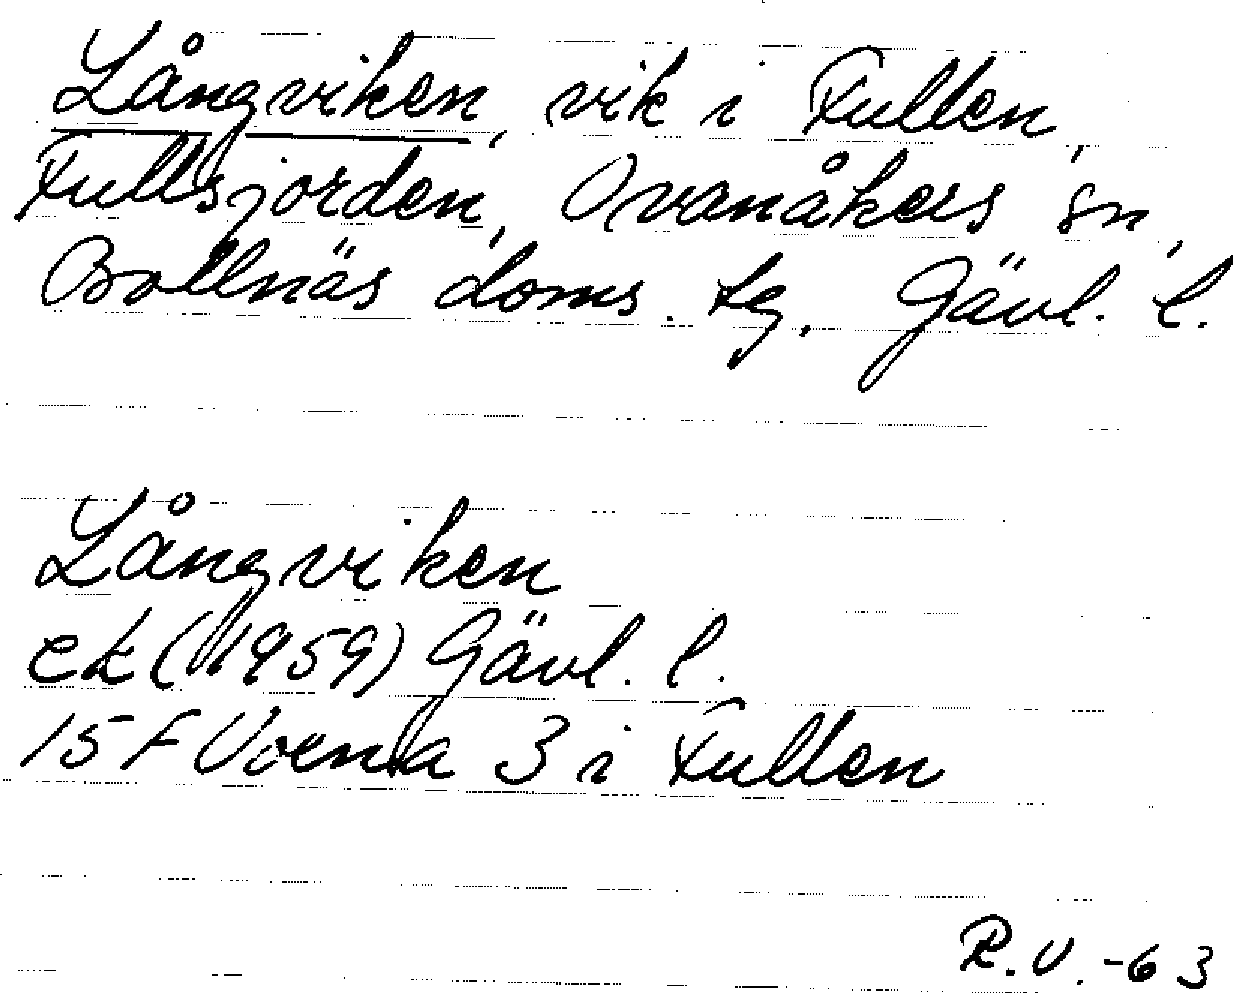 Långviken, vik i Fullen,
Fullsjorden, Ovanåkers sn,
Bollnäs doms. tg. Gävl. l.
Långviken
ek (1959) Gävl. l.
15 F Voxna 3 i Fullen
R.V.-63